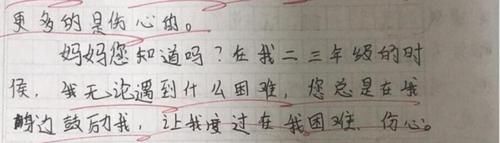 更多的是伤心的。
妈妈您知道吗？在我二三年级的时
候，我无论遇到什么困难，您总是在我
身边鼓励我，让我度过在我困难、伤心。